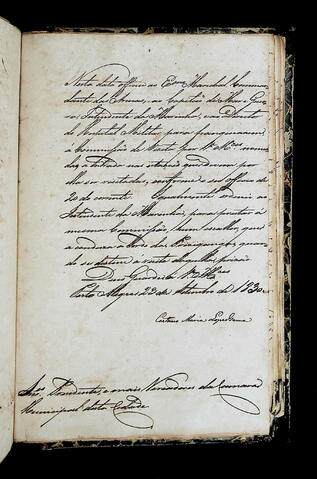 Nesta data officio ao Exmo Marechal Comman-
dante das Armas, ao Capitão de Mar e Guer-
ra, Intendente da Marinha, e ao Director
do Hospital Militar, para franquearem
a Commissão de Visita por Vas Mces nomea-
da, a entrada nas
ella ser visitadas, conforme o seu officio de
20 do corrente. Igualmente ordeno ao
Intendente da Marinha, para prestar á
mesma Commissão, hum escaler, que
a conduza
se destina a visita daquellas prisões
Deos Guarde a Vas Mces
Porto Alegre 22 de Setembro de 1830
Caetano Maria Lopes Gama
Snrs Presidente, e mais Vereadores da Camara
Municipal desta Cidade